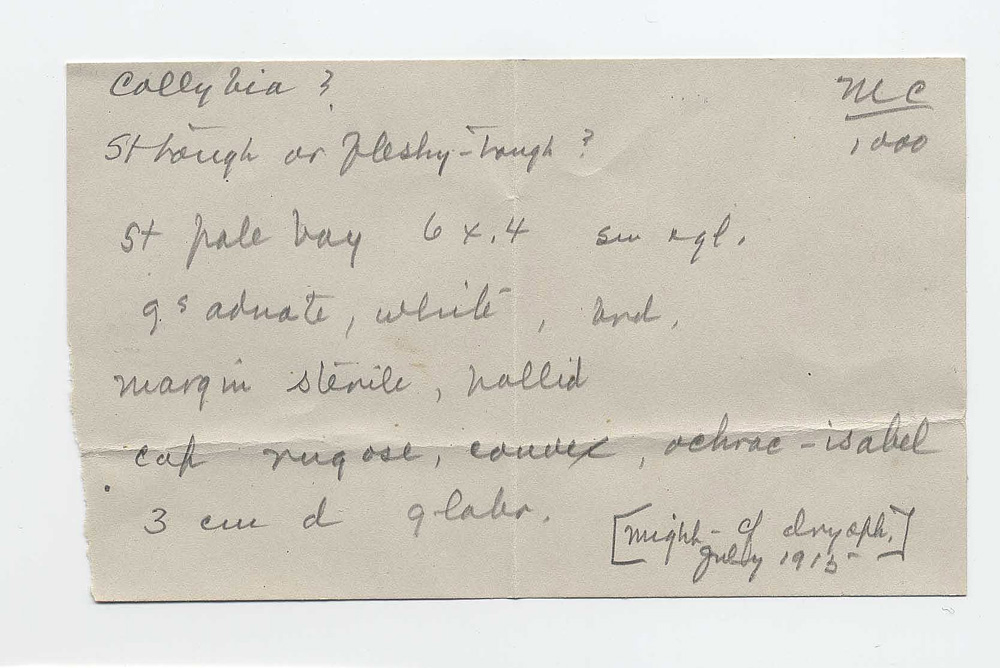 Collybia ?
MC
1000
St tough or fleshy-tough ?
St pale bay 6 x .4 sm eql.
gs adnate, white, and,
margin sterile, pallid
cap rugose, convex, ochrac-isabel
3 cm d glabr.
[might - cf dryoph.]
July 1915